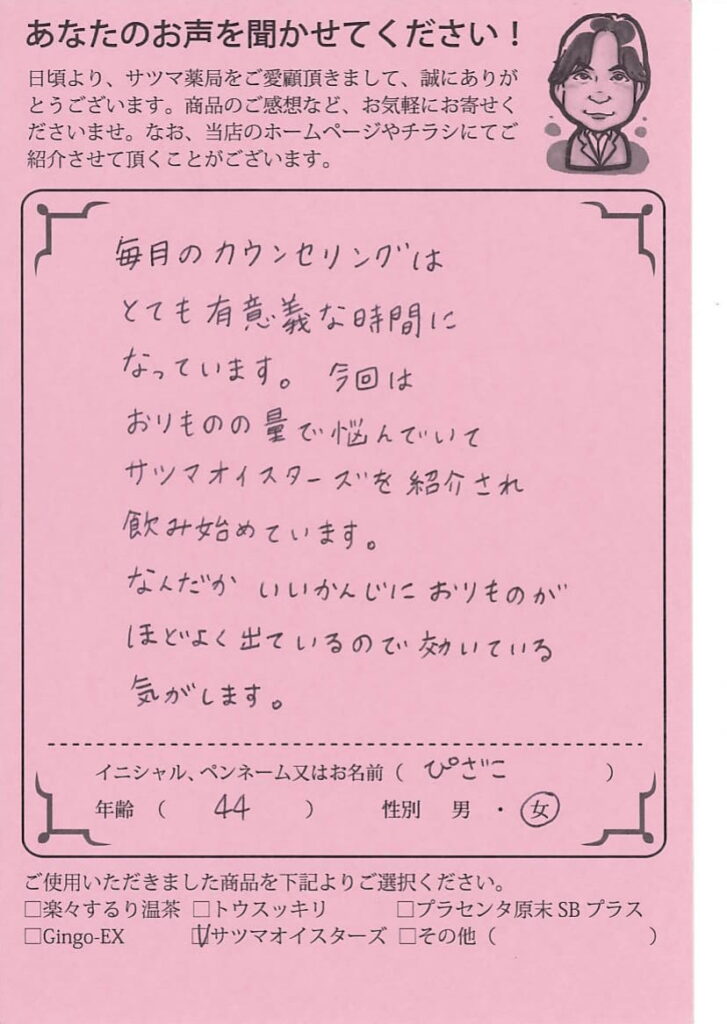 あなたのお声を聞かせてください！
日頃より、サツマ薬局をご愛顧頂きまして、誠にありが
とうございます。商品のご感想など、お気軽にお寄せく
ださいませ。なお、当店のホームページやチラシにてご
紹介させて頂くことがございます。
毎月のカウンセリングは
とても有意義な時間に
なっています。 今回は
おりものの量で悩んでいて
サツマオイスターズを紹介され
飲み始めています。
なんだか いいかんじに おりものが
ほどよく出ているので効いている
気がします。
イニシャル、ペンネーム又はお名前（ ぴざこ ）
年齢 （ 44 ） 性別 男 ・ 女
ご使用いただきました商品を下記よりご選択ください。
□楽々するり温茶 □トウスッキリ □プラセンタ原末 SB プラス
□Gingo-EX ☑サツマオイスターズ □その他（ ）